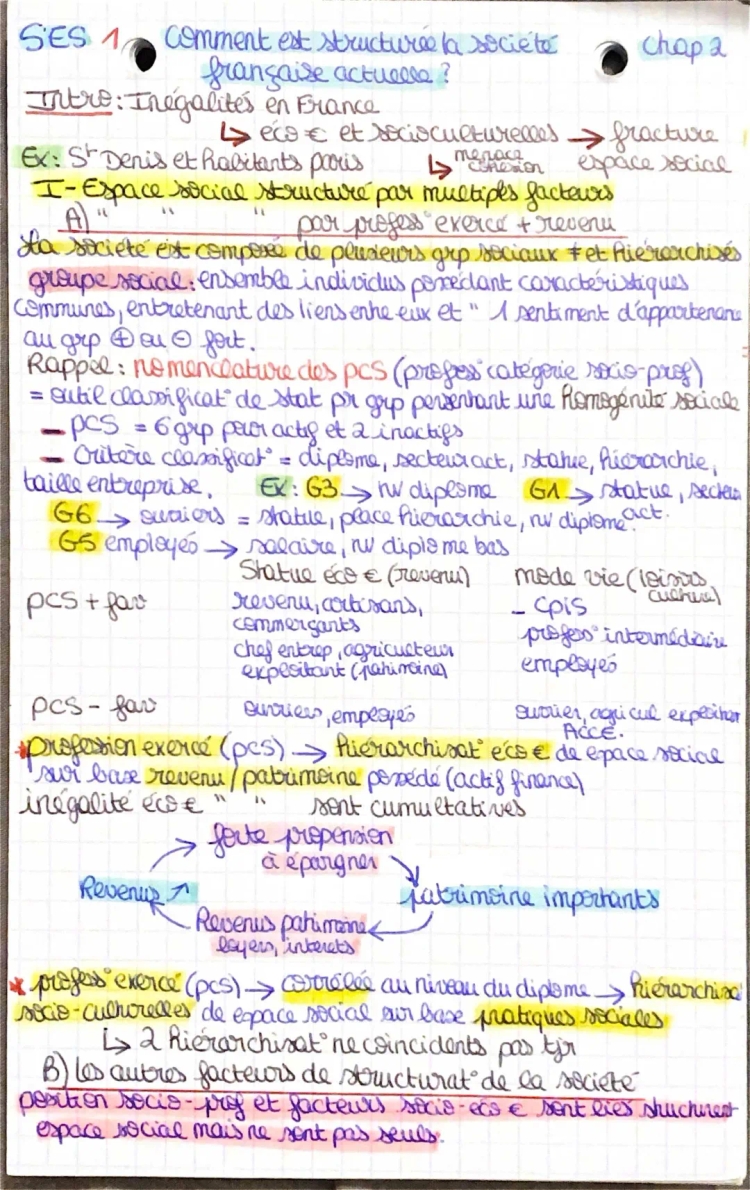 SES 1 Comment est structurée la société Chap 2
française actuelle ?
Intro : Inégalités en France
↳ éco € et socioculturelles → fracture
Ex : St Denis et habitants paris ↳ menace cohésion espace social
I - Espace social structuré par multiples facteurs
A) " " " par profess° exercé + revenu
La société est composée de plusieurs grp sociaux ≠ et hiérarchisés
groupe social : ensemble individus possédant caractéristiques
communes, entretenant des liens entre eux et " 1 sentiment d'appartenance
au grp ⊕ ou ⊖ fort.
Rappel : nomenclature des pcs (profess° catégorie socio-prof)
= outil classificat° de stat pr grp présentant une Homogénité sociale
- pcs = 6 grp pour actif et 2 inactifs
- Critère classificat° = diplome, secteur act, statue, hiérarchie,
taille entreprise. Ex : G3 → nv diplome G1 → statue, secteur act.
G6 → ouvriers = statue, place hiérarchie, nv diplome
G5 employés → salaire, nv diplome bas
Statue éco € (revenu) mode vie (loisirs, culture)
pcs + fav revenu, artisans, - CPIS
commerçants profess° intermédiaire
chef entrep, agriculteur employés
exploitant (patrimoine)
pcs - fav ouvriers, employés ouvrier, agricul exploitan
ACCE.
* profession exercé (pcs) → hiérarchisat° éco € de epace social
sur base revenu / patrimoine possédé (actif finance)
inégalité éco € " " sont cumultatives
→ forte propension
à épargner
Revenus ↗ patrimoine importants
Revenus patrimoine
loyers, interets
* profess° exercé (pcs) → corrélée au niveau du diplome → hiérarchisa
socio-culturelles de espace social sur base pratiques sociales
↳ 2 hiérarchisat° ne coincidents pas tjr
B) Les autres facteurs de structurat° de la société
position socio-prof et facteurs socio-éco € sont liés structurent
espace social mais ne sont pas seuls.